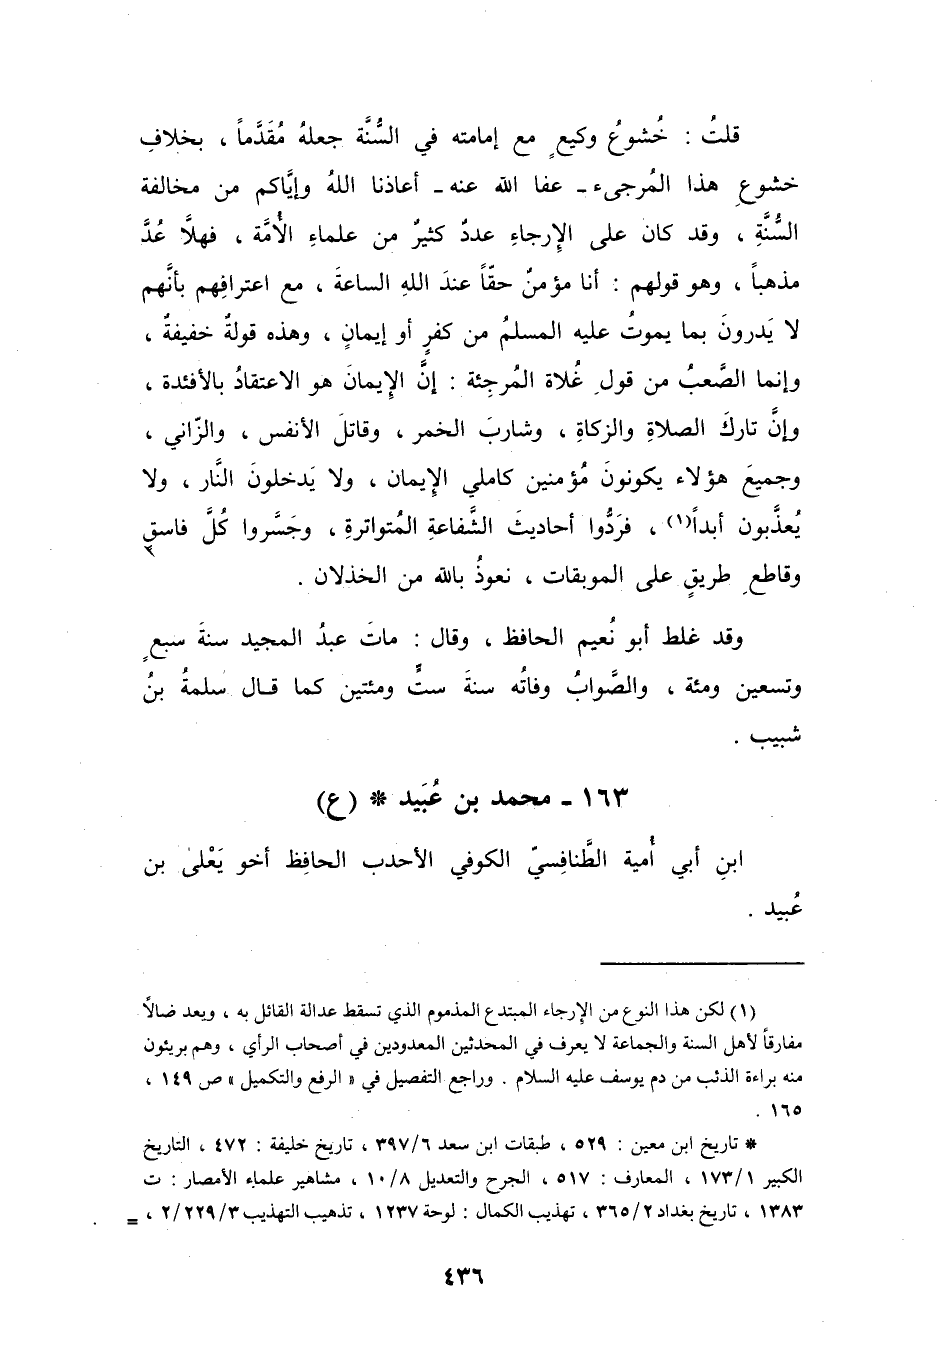 قلتُ : خُشوعُ وكيعٍ مع إمامته في السُّنَّة جعلهُ مُقَدَّماً ، بخلافِ
خشوعِ هذا المُرجىء ـ عفا الله عنه ـ أعاذنا اللهُ وإيَّاكم من مخالفة
السُّنَّةِ ، وقد كان على الإرجاءِ عددٌ كثيرٌ من علماءِ الأُمَّة ، فهلَّا عُدَّ
مذهباً ، وهو قولهم : أنا مؤمنٌ حقّاً عندَ اللهِ الساعةَ ، مع اعترافِهم بأنَّهم
لا يَدرونَ بما يموتُ عليه المسلمُ من كفرٍ أو إيمانٍ ، وهذه قولةٌ خفيفةٌ ،
وإنما الصَّعبُ من قولِ غُلاة المُرجِئة : إنَّ الإيمانَ هو الاعتقادُ بالأفئدة ،
وإنَّ تاركَ الصلاةِ والزكاةِ ، وشاربَ الخمر ، وقاتلَ الأنفس ، والزّاني ،
وجميعَ هؤلاء يكونونَ مُؤمنين كاملي الإيمان ، ولا يَدخلونَ النَّار ، ولا
يُعذَّبون أبداً(١) ، فرَدُّوا أحاديثَ الشَّفاعةِ المُتواترةِ ، وجَسَّروا كُلَّ فاسقٍ
وقاطعِ طريقٍ على الموبقات ، نعوذُ بالله من الخذلان .
وقد غلط أبو نُعيم الحافظ ، وقال : ماتَ عبدُ المجيد سنةَ سبعٍ
وتسعين ومئة ، والصَّوابُ وفاتُه سنةَ ستٍّ ومئتين كما قال سلمةُ بنُ
شبيب .
١٦٣ ـ محمد بن عُبَيد * (ع)
ابنِ أبي أُمية الطَّنافِسيّ الكوفي الأحدب الحافِظ أخو يَعْلىٰ بن
عُبيد .
(١) لكن هذا النوع من الإرجاء المبتدع المذموم الذي تسقط عدالة القائل به ، ويعد ضالاً
مفارقاً لأهل السنة والجماعة لا يعرف في المحدثين المعدودين في أصحاب الرأي ، وهم بريئون
منه براءة الذئب من دم يوسف عليه السلام . وراجع التفصيل في « الرفع والتكميل » ص ١٤٩ ،
١٦٥ .
* تاريخ ابن معين : ٥٢٩ ، طبقات ابن سعد ٣٩٧/٦ ، تاريخ خليفة : ٤٧٢ ، التاريخ
الكبير ١٧٣/١ ، المعارف : ٥١٧ ، الجرح والتعديل ١٠/٨ ، مشاهير علماء الأمصار : ت
١٣٨٣ ، تاريخ بغداد ٣٦٥/٢ ، تهذيب الكمال : لوحة ١٢٣٧ ، تذهيب التهذيب ٢/٢٢٩/٣ ، =
٤٣٦